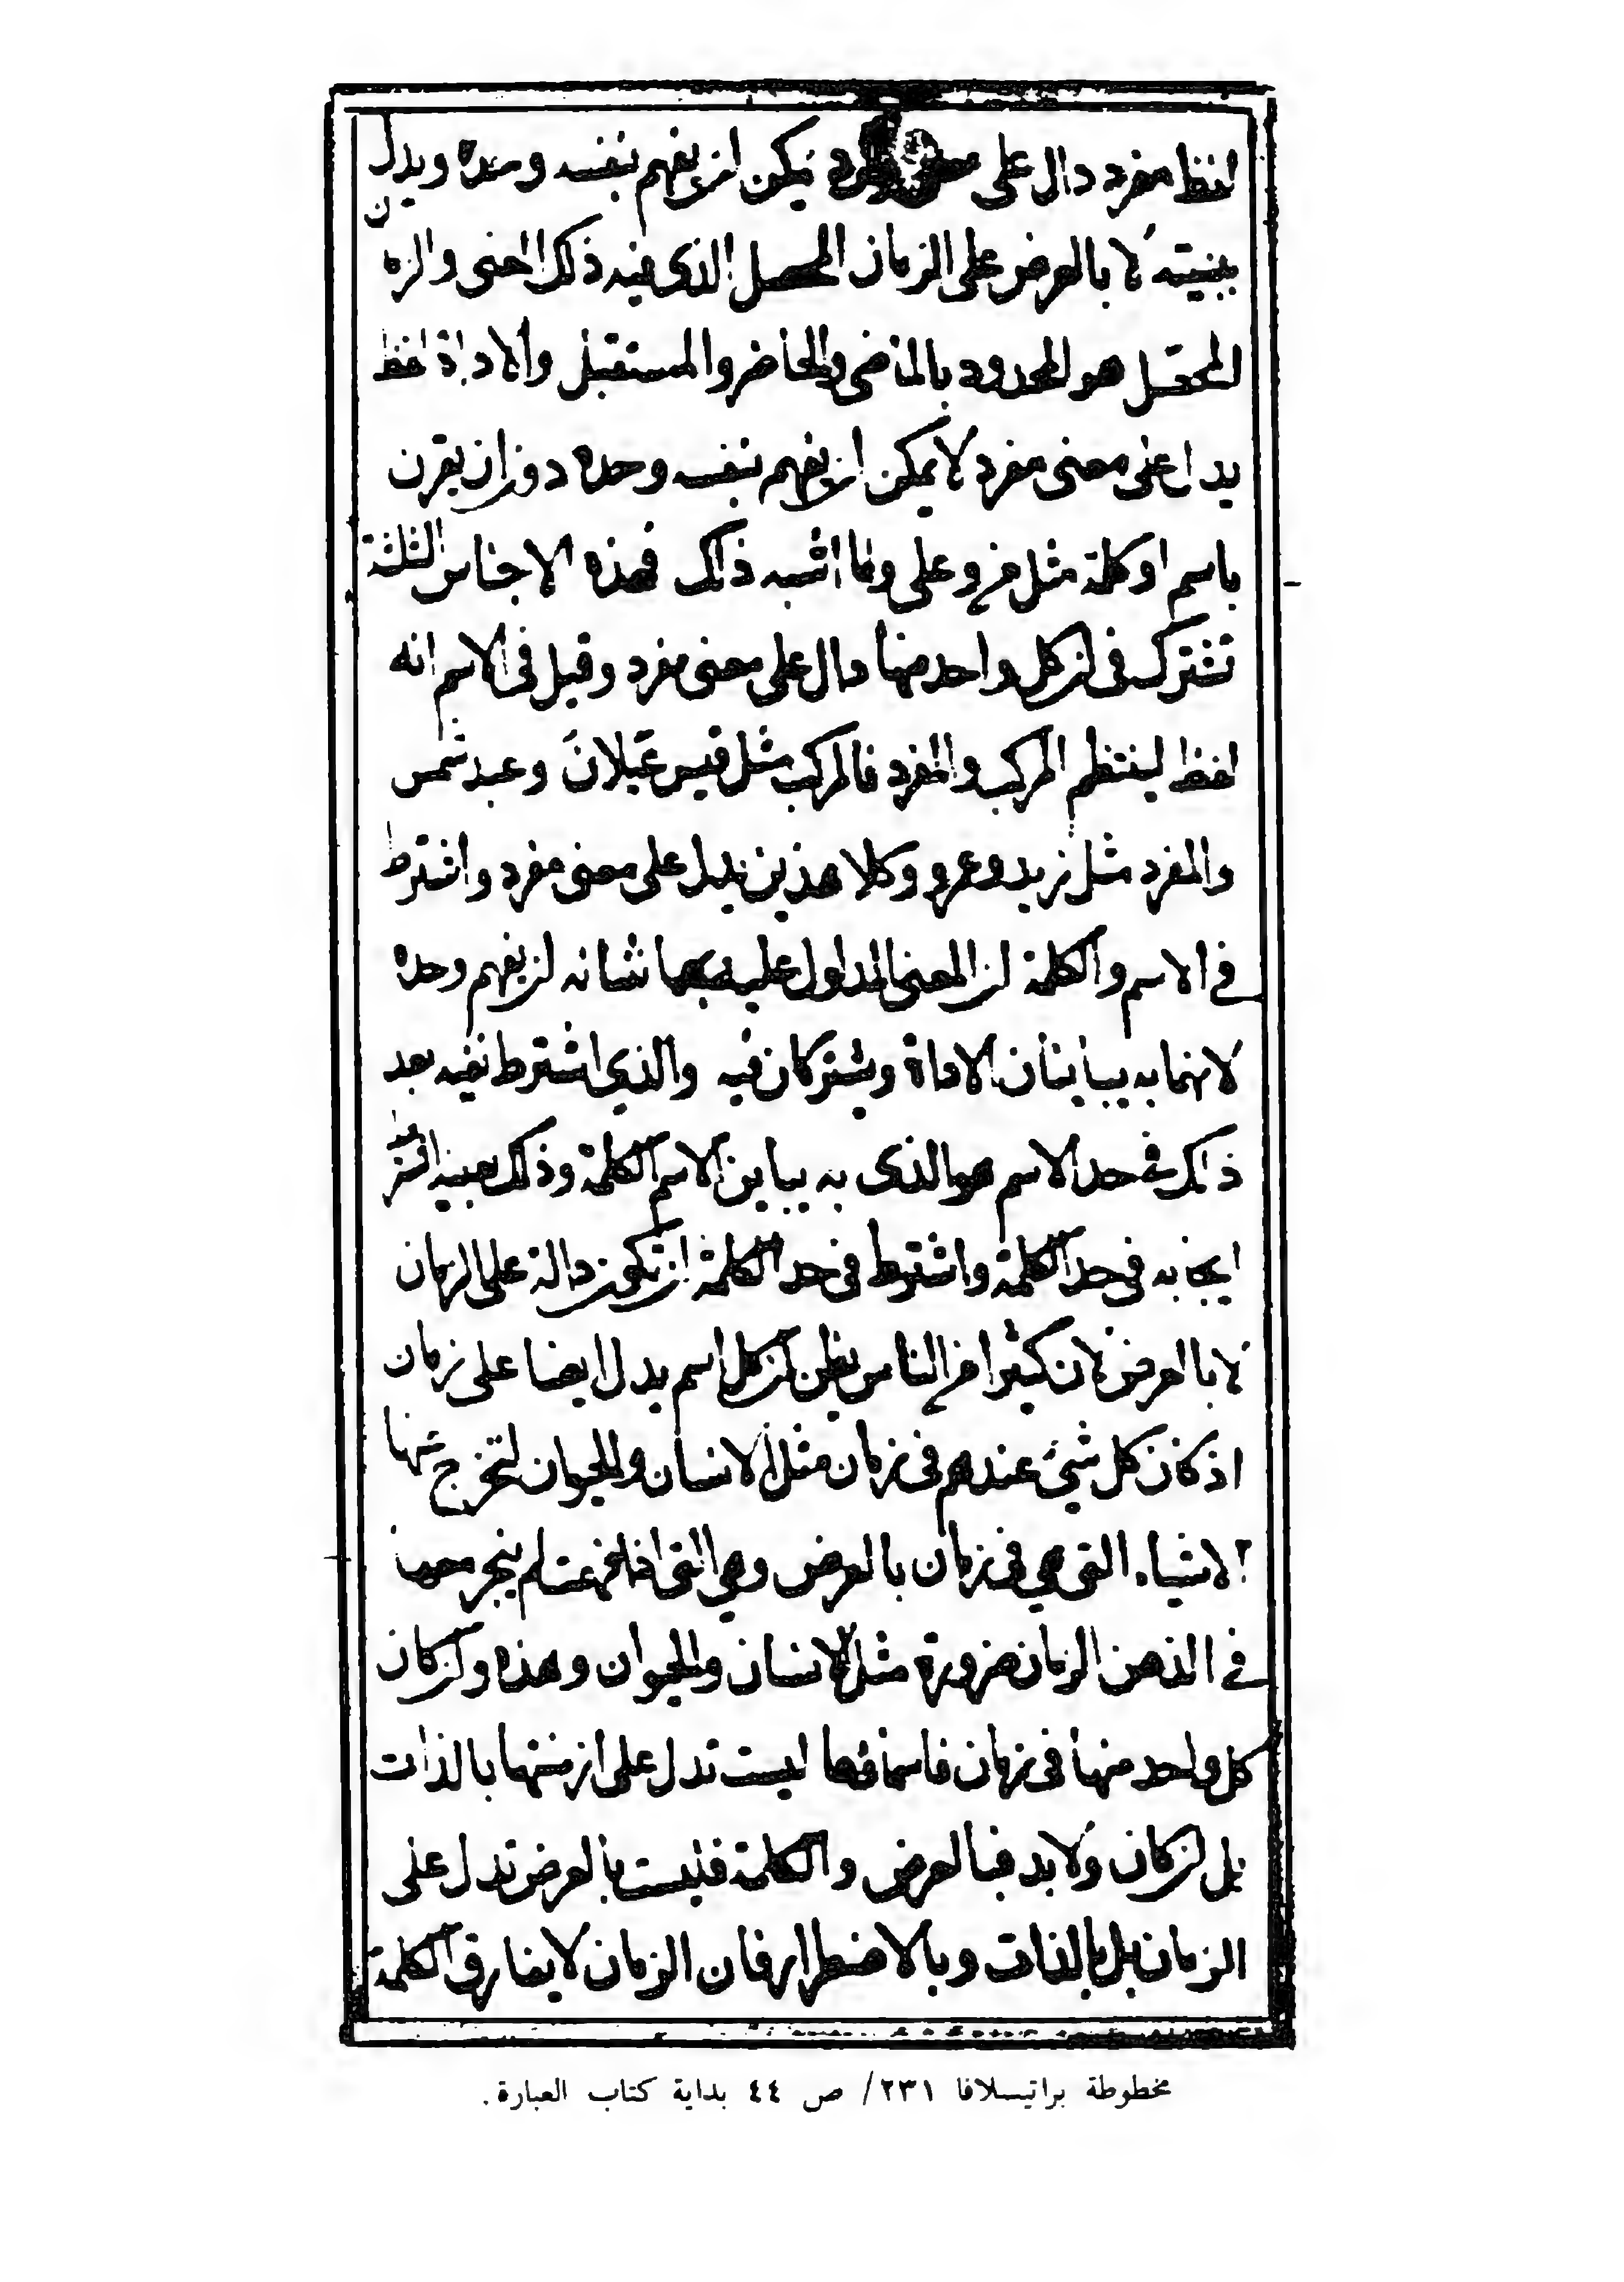 لفظ مفرد دال على معنى مفرد يمكن ان يفهم بنفسه وحده ويدل
ببنيته لا بالعرض على الزمان المحصل الذى فيه ذلك المعنى والزمان
المحصل هو المحدود بالماضى والحاضر والمستقبل والاداة لفظ
يدل على معنى مفرد لا يمكن ان يفهم بنفسه وحده دون ان يقرن
باسم او كلمة مثل من وعلى وما اشبه ذلك فهذه الاجناس الثلثة
تشترك فى ان كل واحد منها دال على معنى مفرد وقيل فى الاسم انه
لفظ لينتظم المركب والمفرد فالمركب مثل قيس عيلان وعبد شمس
والمفرد مثل زيد وعمرو وكلا هذين يدل على معنى مفرد واشترط
فى الاسم والكلمة ان المعنى المدلول عليه بهما شانه ان يفهم وحده
لانهما به يباينان الاداة ويشتركان فيه والذى اشترط نفيه بعد
ذلك فى حد الاسم هو الذى به يباين الاسم الكلمة وذلك بعينه اشترط
ايجابه فى حد الكلمة واشترط فى حد الكلمة ان تكون دالة على الزمان
لا بالعرض لان كثيرا من الناس يظن ان كل اسم يدل ايضا على زمان
اذ كان كل شيء عندهم فى زمان مثل الانسان والحيوان لتخرج عنها
الاشياء التى هى فى زمان بالعرض وهى التى اذا فهمت لم ينجر معها
فى الذهن الزمان ضرورة مثل الانسان والحيوان وهذه وان كان
كل واحد منها فى زمان فاسماؤها ليست تدل على ازمنتها بالذات
بل ان كان ولا بد فبالعرض والكلمة فليست بالعرض تدل على
الزمان بل بالذات وبالاضطرار فان الزمان لا يفارق الكلمة
مخطوطة براتيسلافا ٢٣١/ ص ٤٤ بداية كتاب العبارة.